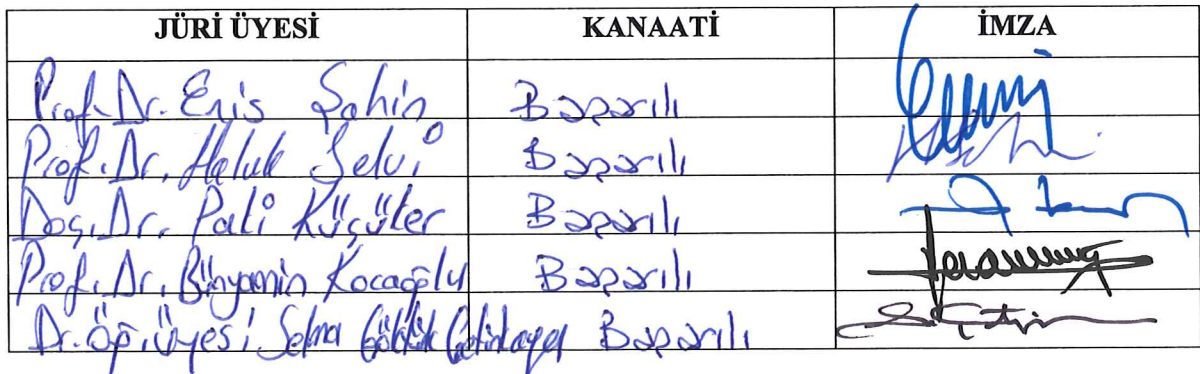 JÜRİ ÜYESİ KANAATİ İMZA
Prof. Dr. Enis Şahin Başarılı
Prof. Dr. Haluk Selvi Başarılı
Doç. Dr. Başarılı
Prof. Dr. Bünyamin Kocaoğlu Başarılı
Dr. Öğr. Üyesi Selma Göktürk Çetinkaya Başarılı